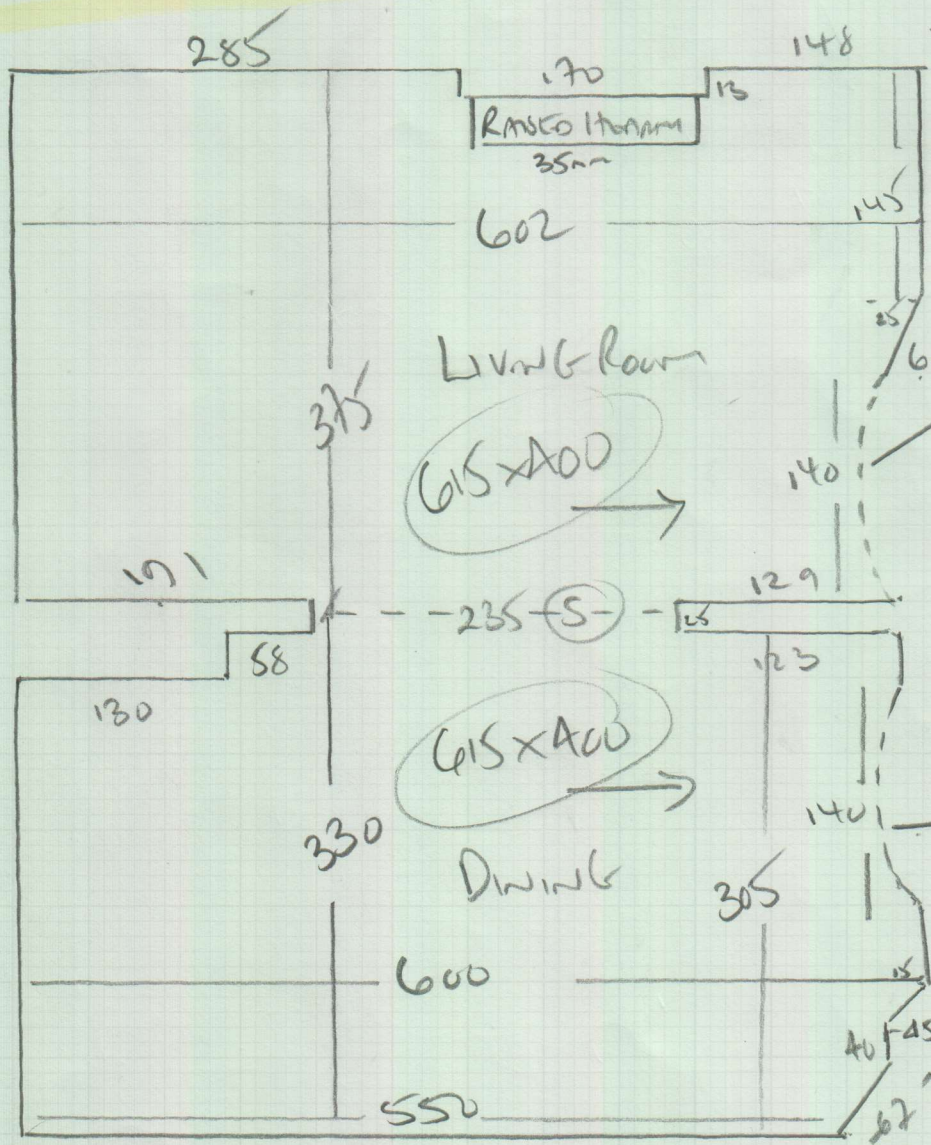 285
148
170
13
RAISED HEARTH
35mm
602
145
25
6
LIVING ROOM
375
615 x A00
140
191
129
235
S
25
58
123
130
615 x A00
140
330
DINING
305
600
15
40
45
550
67